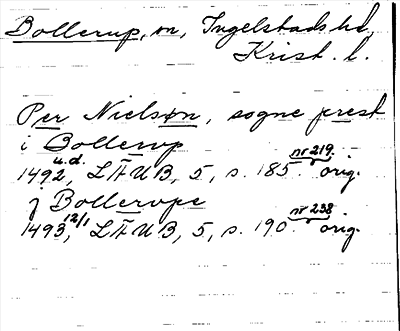 Bollerup, sn, Ingelstads hd,
Krist. l.
Per Nielsøn, sogne prest
i Bollerup
u.d. nr 219.
1492, LÄUB, 5, s. 185 orig.
j Bollerupe
12/1 nr 238
1493, LÄUB, 5, s. 190 orig.